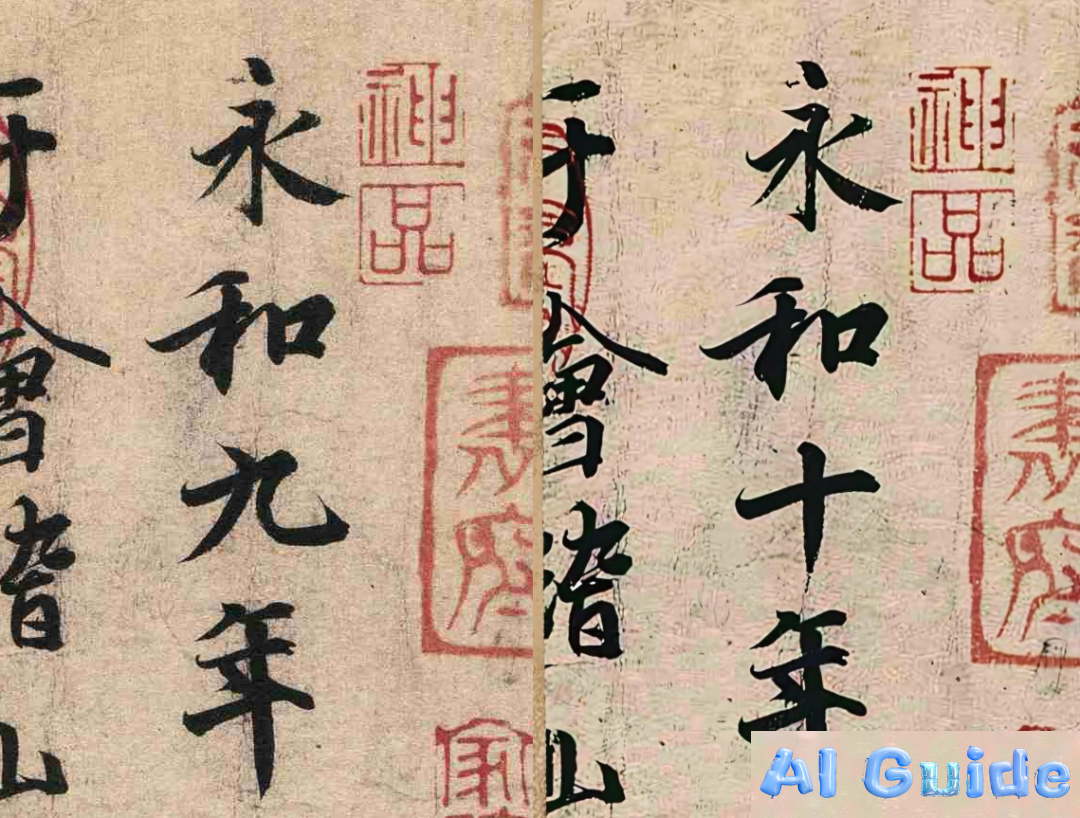 神品
永和九年
于會稽山
神品
永和十年
于會稽山
AI Guide